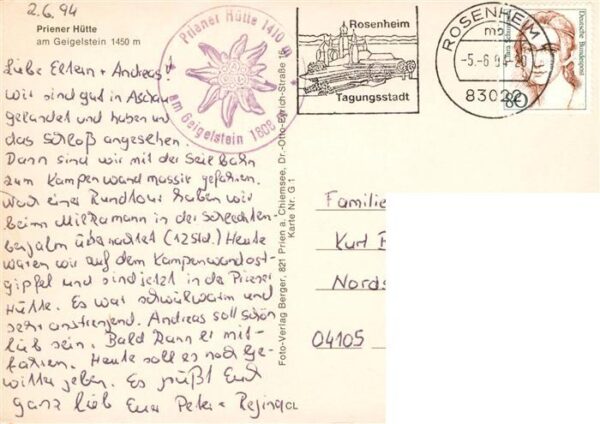 2.6.94
Priener Hütte
am Geigelstein 1450 m
Liebe Eltern + Andreas!
wir sind gut in Aschau
gelandet und haben uns
das Schloß angesehen.
Dann sind wir mit der Seilbahn
zum Kampenwandmassiv gefahren.
Nach einer Rundtour haben wir
beim Milkamann in der Schlechten-
bergalm übernachtet (12 Std.) Heute
waren wir auf dem Kampenwandost-
gipfel und sind jetzt in der Priener
Hütte. Es war schwülwarm und
sehr anstrengend. Andreas soll schön
lieb sein. Bald kann er mit-
fahren. Heute soll es noch Ge-
witter geben. Es grüßt Euch
ganz lieb Eure Peter + Regina
Priener Hütte 1410 m
am Geigelstein 1808 m
Foto-Verlag Berger, 821 Prien a. Chiemsee, Dr.-Otto-Ehrich-Straße
Karte Nr. G 1
Rosenheim
Tagungsstadt
ROSENHEIM
mb
-5.-6.94-20
83022
Deutsche Bundespost
Clara
80
Familie
Kurt
Nords
04105